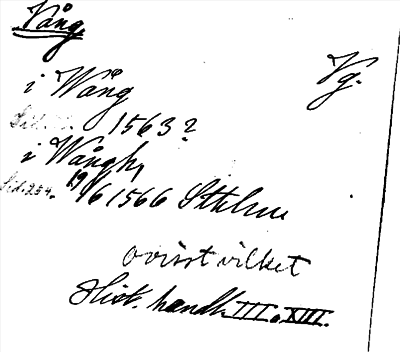 Vång
Vg.
i Wång
1563?
i Wångh,
Sid. 254. 19/6 1566 Sthlm
ovisst vilket
Hist. handl. III o. XIII.